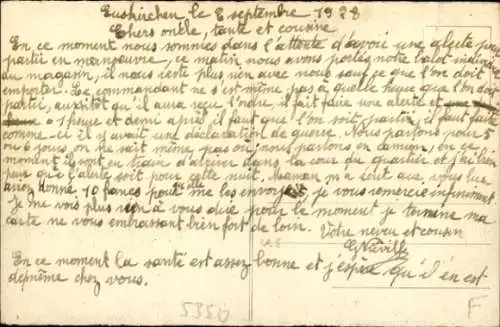 Euskirchen le 8 septembre 1928
Chers oncle, tante et cousine
En ce moment nous sommes dans l'attente d'avoir une alerte pour
partir en manœuvre, ce matin nous avons portés notre ballot
du magasin, il nous reste plus rien avec nous sauf ce que l'on doit
emporter. Le commandant ne s'est même pas à quelle heure que l'on doit
partir, aussitôt qu'il aura reçu l'ordre il fait faire une alerte et
1 heure et demi après il faut que l'on soit partir, il faut faire
comme-ci il y avait une déclaration de guerre. Nous partons pour 5
ou 6 jours, on ne sait même pas où nous partons en demain, en ce
moment ils sont en train d'alerter dans la cour du quartier et j'ai bien
peur que ç'alerte soit pour cette nuit. Maman m'a écrit que vous lui
avez donné 10 francs pour me les envoyer je vous remercie infiniment
Je ne vois plus rien à vous dire pour le moment je termine ma
carte ne vous embrassant bien fort de loin. Votre neveu et cousin
En ce moment la santé est assez bonne et j'espère qu'il en est
de même chez vous.
5350
F